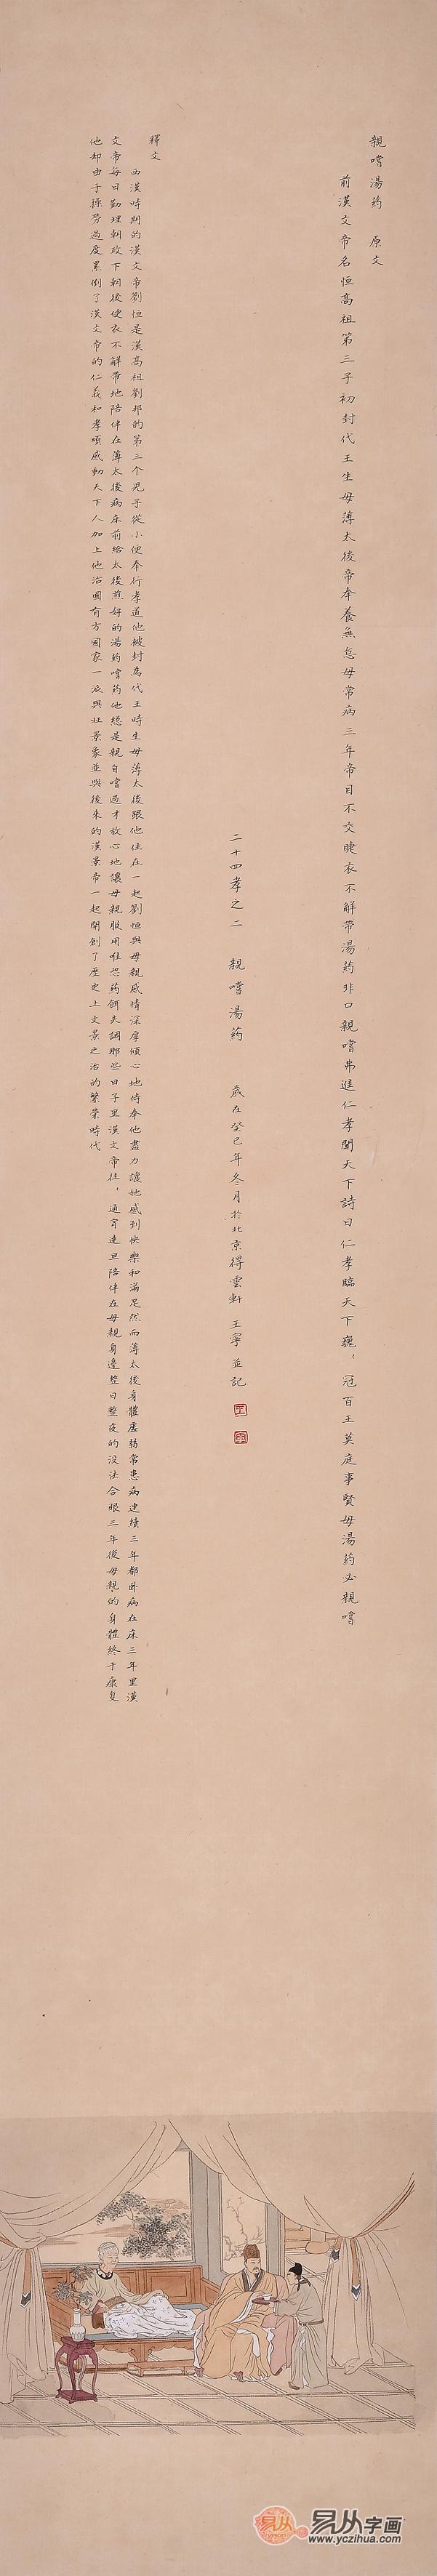 親嚐湯药 原文
前漢文帝名恒高祖第三子初封代王生母薄太後帝奉養無怠母常病三年帝目不交睫衣不解帶湯药非口親嚐弗進仁孝聞天下詩曰仁孝臨天下巍、冠百王莫庭事賢母湯药必親嚐
二十四孝之二 親嚐湯药 歲在癸巳年冬月於北京得雲軒 王寧並記
釋文
西漢時期的漢文帝劉恒是漢高祖劉邦的第三个兒子從小便奉行孝道他被封為代王時生母薄太後跟他住在一起劉恒與母親感情深厚傾心地侍奉他盡力讓她感到快樂和滿足然而薄太後身體虛弱常患病連續三年都卧病在床三年里漢
文帝每日勤理朝政下朝後便衣不解带地陪伴在薄太後病床前給太後煎好的湯药嚐药他總是親自嚐過才放心地讓母親服用唯恐药餌失調那些日子里漢文帝往、通宵達旦陪伴在母親身邊整日整夜的没法合眼三年後母親的身體終于康复
他却由于操勞過度累倒了漢文帝的仁義和孝順感動天下人加上他治國有方國家一派興旺景象並與後來的漢景帝一起開創了歷史上文景之治的繁荣時代
易从字画
www.yczihua.com